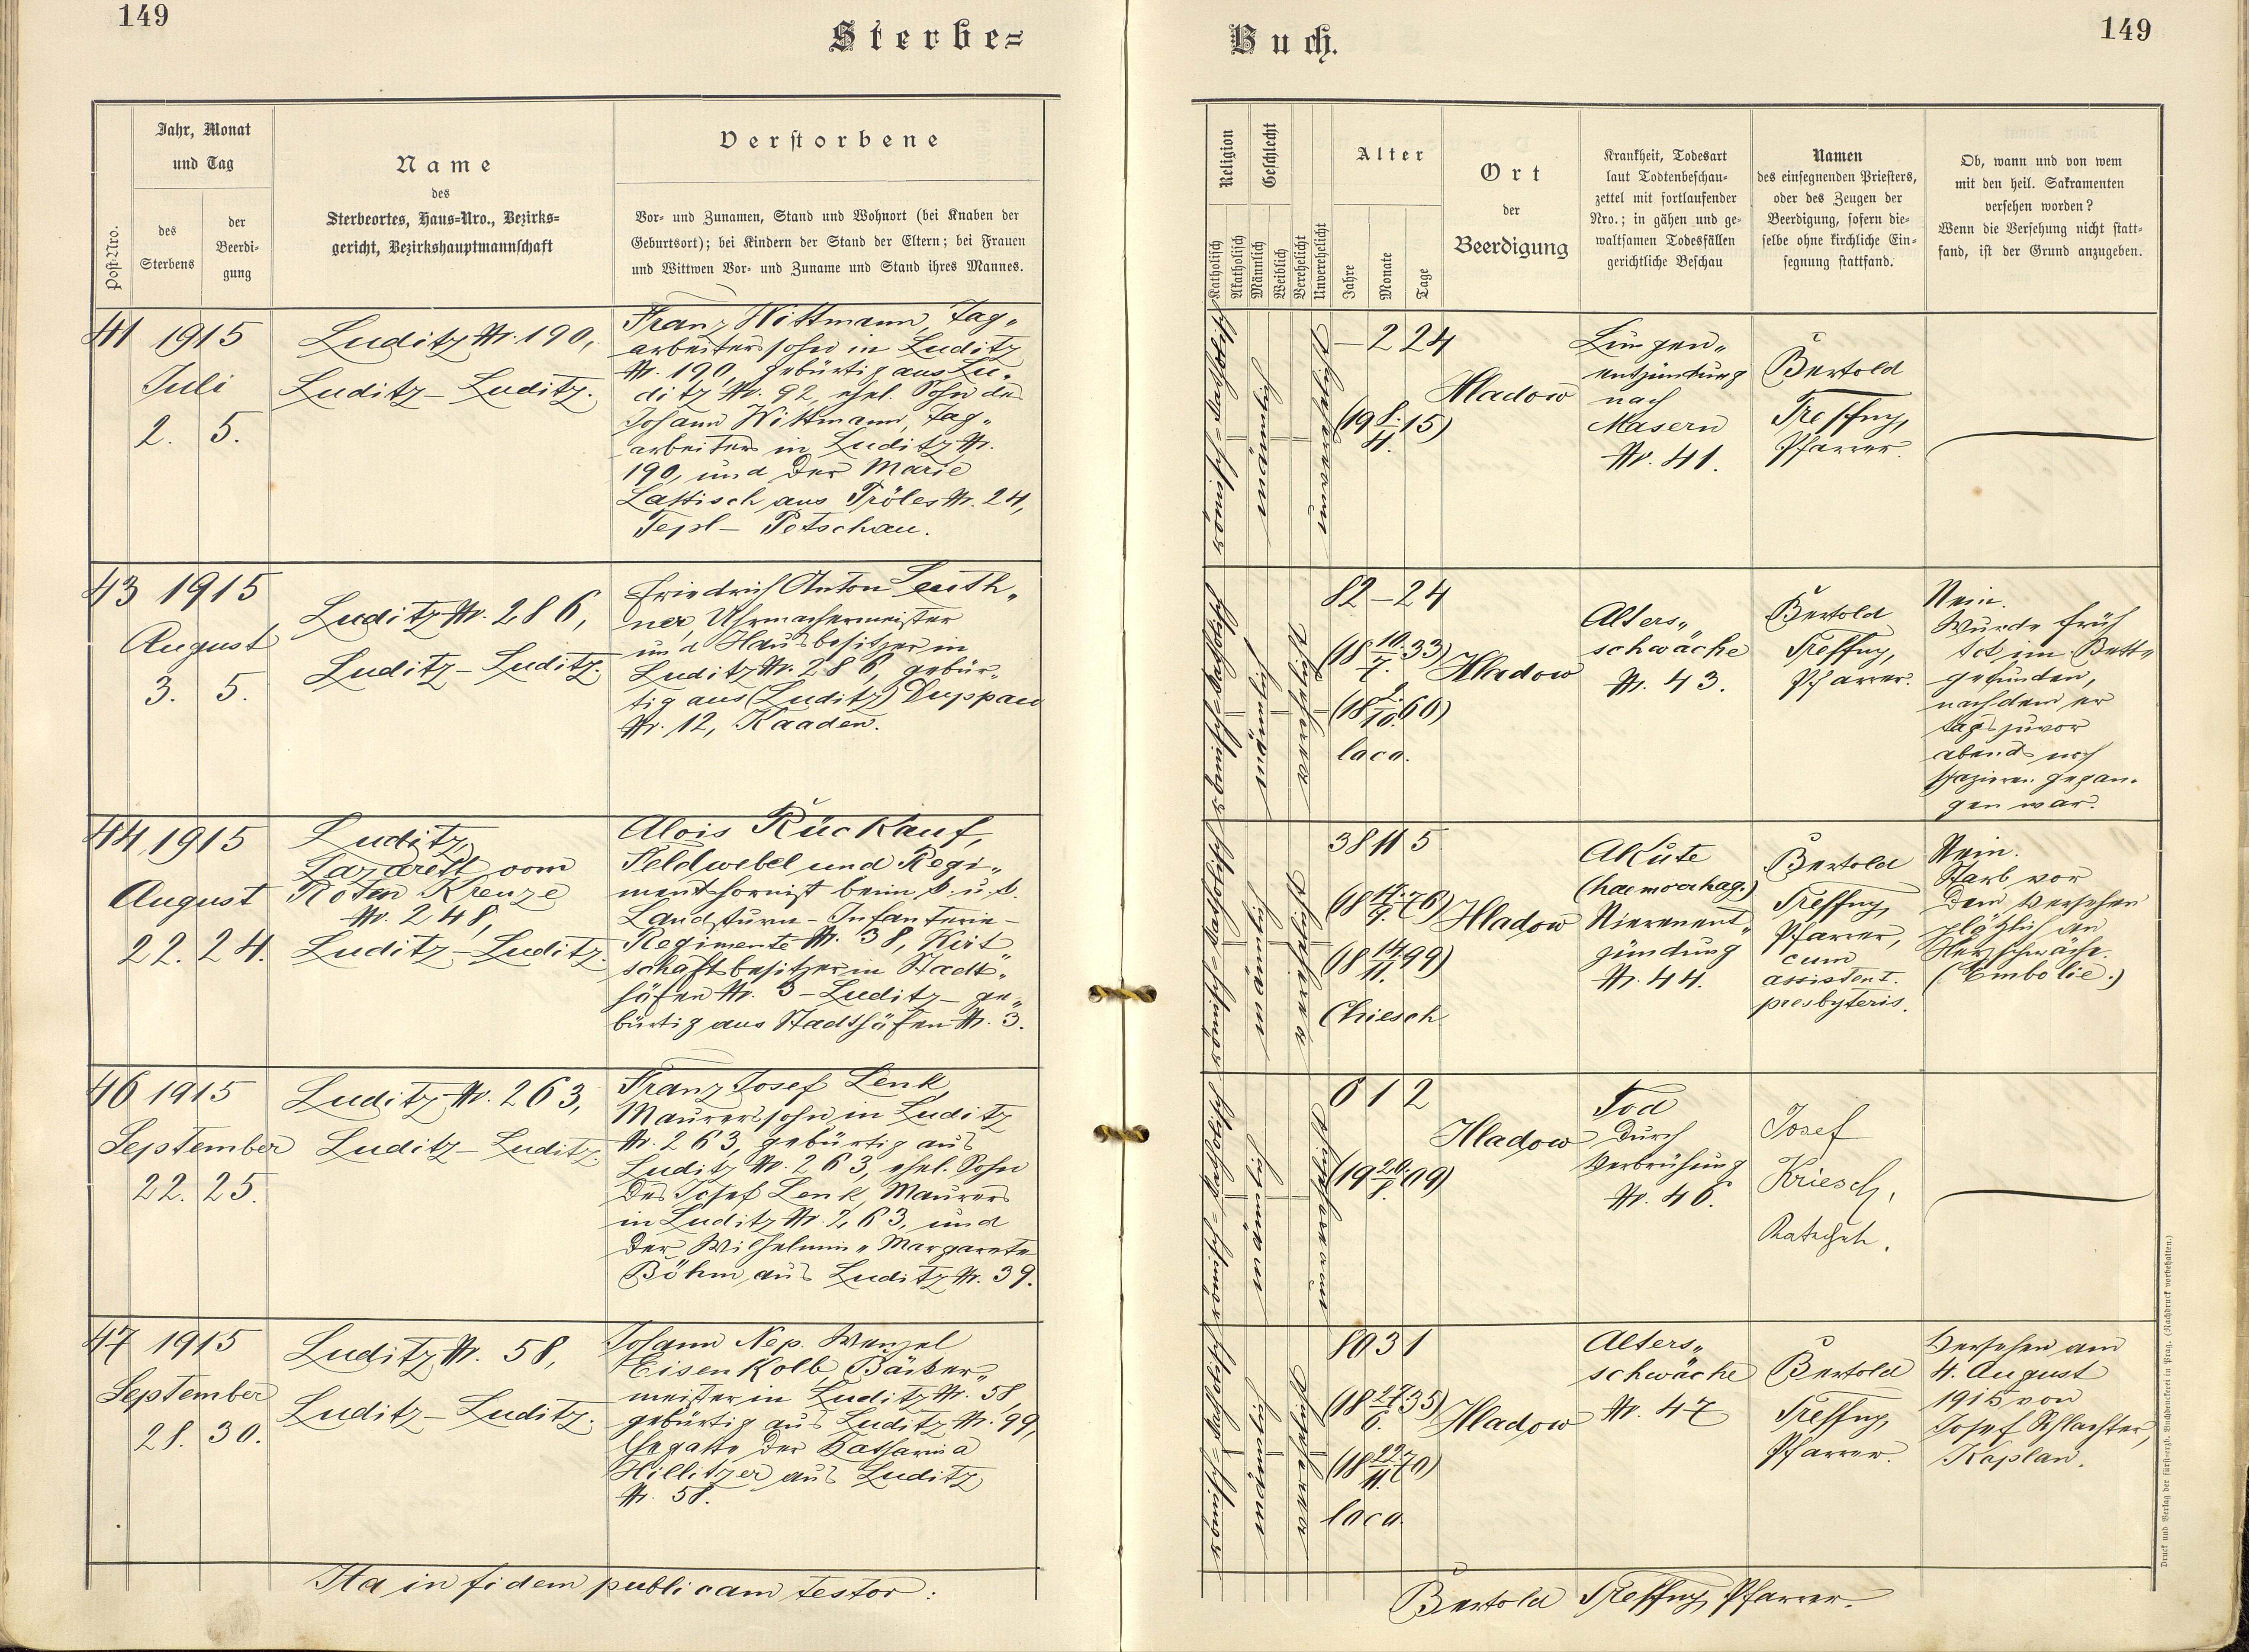 149
Sterbe=
Post-Nro.
Jahr, Monat
und Tag
des
Sterbens
der
Beerdi-
gung
Name
des
Sterbeortes, Haus-Nro., Bezirks-
gericht, Bezirkshauptmannschaft
Verstorbene
Vor- und Zunamen, Stand und Wohnort (bei Knaben der
Geburtsort); bei Kindern der Stand der Eltern; bei Frauen
und Wittwen Vor- und Zuname und Stand ihres Mannes.
41 1915
Juli
2. 5.
Luditz Nr. 190,
Luditz – Luditz.
Franz Wittmann, Tag„
arbeiterssohn in Luditz
Nr. 190, gebürtig aus Lu„
ditz Nr. 92, ehel. Sohn des
Johann Wittmann, Tag„
arbeiters in Luditz Nr.
190, und der Marie
Lattisch aus Tröles Nr. 24,
Tepl – Petschau.
43 1915
August
3. 5.
Luditz Nr. 286,
Luditz – Luditz.
Friedrich Anton Leuth„
ner, Uhrmachermeister
und Hausbesitzer in
Luditz Nr. 286, gebür„
tig aus (Luditz) Duppau
Nr. 12, Kaaden.
44 1915
August
22. 24.
Luditz,
Lazarett vom
Roten Kreuze
Nr. 248,
Luditz – Luditz.
Alois Rückauf,
Feldwebel und Regi„
mentshornist beim k. u. k.
Landsturm – Infanterie –
Regimente Nr. 38, Wirt„
schaftsbesitzer in Stadt„
höfen Nr. 3 – Luditz – ge„
bürtig aus Stadthöfen Nr. 3.
46 1915
September
22. 25.
Luditz Nr. 263,
Luditz – Luditz.
Franz Josef Lenk,
Maurerssohn in Luditz
Nr. 263, gebürtig aus
Luditz Nr. 263, ehel. Sohn
des Josef Lenk, Maurers
in Luditz Nr. 263, und
der Wilhelmin„ Margarete
Böhm aus Luditz Nr. 39.
47 1915
September
28. 30.
Luditz Nr. 58,
Luditz – Luditz.
Johann Nep. Wenzel
Eisenkolb, Bäcker„
meister in Luditz Nr. 58,
gebürtig aus Luditz Nr. 99,
Ehegatte der Katharina
Hillitzer aus Luditz
Nr. 58.
Ita in fidem publicam testor:
Buch.
149
Religion
Katholisch
Akatholisch
Geschlecht
Männlich
Weiblich
Verehelicht
Unverehelicht
Alter
Jahre
Monate
Tage
Ort
der
Beerdigung
Krankheit, Todesart
laut Todtenbeschau-
zettel mit fortlaufender
Nro.; in gähen und ge-
waltsamen Todesfällen
gerichtliche Beschau
Namen
des einsegnenden Priesters,
oder des Zeugen der
Beerdigung, sofern die-
selbe ohne kirchliche Ein-
segnung stattfand.
Ob, wann und von wem
mit den heil. Sakramenten
versehen worden?
Wenn die Versehung nicht statt-
fand, ist der Grund anzugeben.
römisch=katholisch
männlich
unverehelicht
– 2 24
(19 8./4. 15)
Hladow
Lungen„
entzündung
nach
Masern
Nr. 41.
Bertold
Treffny,
Pfarrer.
römisch=katholisch
männlich
verehelicht
82 – 24
(18 10./7. 33)
Hladow
loco.
Alters„
schwäche
Nr. 43.
Bertold
Treffny,
Pfarrer.
Nein.
Wurde früh
tot im Bett„
gefunden,
nachdem er
tags zuvor
abends noch
spazieren gegan„
gen war.
römisch=katholisch
männlich
verehelicht
38 11 5
(18 17./9. 76)
(18 14./11. 99)
Chiesch
Hladow
Akute
(haemorrhag.)
Nierenent„
zündung
Nr. 44.
Bertold
Treffny,
Pfarrer,
cum
assistent.
presbyteris.
Nein.
Starb vor
dem Versehen
plötzlich an
Herzschwäche.
(Embolie.)
römisch=katholisch
männlich
unverehelicht
6 1 2
Hladow
Tod
durch
Verbrühung
Nr. 46.
Josef
Kriesch,
Katechet.
römisch=katholisch
männlich
verehelicht
80 3 1
(18 27./6. 35)
(18 22./11. 70)
loco.
Hladow
Alters„
schwäche
Nr. 47
Bertold
Treffny,
Pfarrer.
Versehen am
4. August
1915 von
Josef Schlachter,
Kaplan.
Bertold Treffny, Pfarrer.
Druck und Verlag der fürst-erzb. Buchdruckerei in Prag. (Nachdruck vorbehalten.)